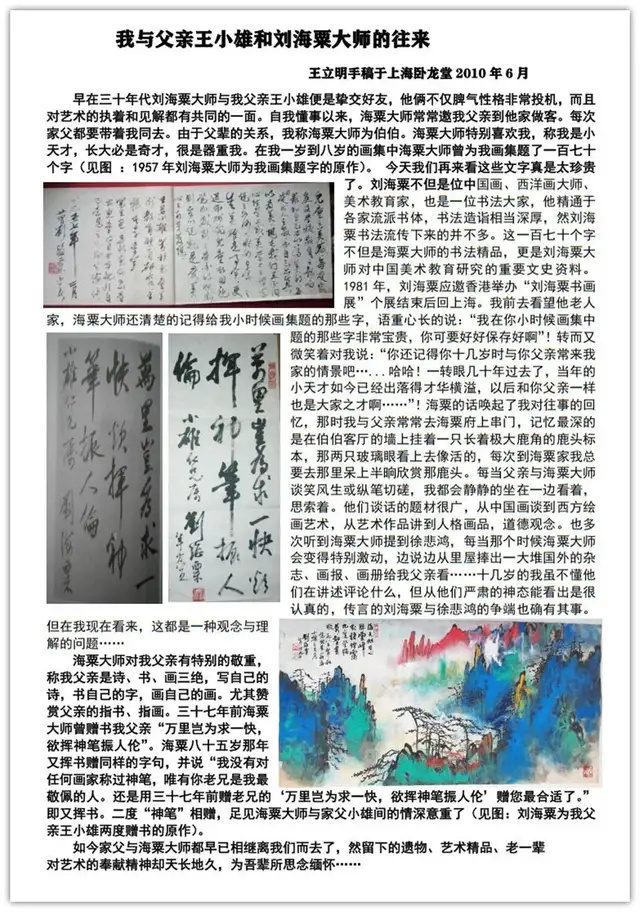 我与父亲王小雄和刘海粟大师的往来
王立明手稿于上海卧龙堂 2010 年 6 月
早在三十年代刘海粟大师与我父亲王小雄便是挚交好友，他俩不仅脾气性格非常投机，而且
对艺术的执着和见解都有共同的一面。自我懂事以来，海粟大师常常邀我父亲到他家做客。每次
家父都要带着我同去。由于父辈的关系，我称海粟大师为伯伯。海粟大师特别喜欢我，称我是小
天才，长大必是奇才，很是器重我。在我一岁到八岁的画集中海粟大师曾为我画集题了一百七十
个字（见图 ：1957 年刘海粟大师为我画集题字的原作）。 今天我们再来看这些文字真是太珍贵
了。刘海粟不但是位中国画、西洋画大师、
美术教育家，也是一位书法大家，他精通于
各家流派书体，书法造诣相当深厚，然刘海
粟书法流传下来的并不多。这一百七十个字
不但是海粟大师的书法精品，更是刘海粟大
师对中国美术教育研究的重要文史资料。
1981 年，刘海粟应邀香港举办“刘海粟书画
展”个展结束后回上海。我前去看望他老人
家，海粟大师还清楚的记得给我小时候画集题的那些字，语重心长的说：“我在你小时候画集中
题的那些字非常宝贵，你可要好好保存好啊”！转而又
微笑着对我说：“你还记得你十几岁时与你父亲常来我
家的情景吧…...哈哈！一转眼几十年过去了，当年的
小天才如今已经出落得才华横溢，以后和你父亲一样
也是大家之才啊……”！海粟的话唤起了我对往事的回
忆，那时我与父亲常常去海粟府上串门，记忆最深的
是在伯伯客厅的墙上挂着一只长着极大鹿角的鹿头标
本，那两只玻璃眼看上去像活的，每次到海粟家我总
要去那里呆上半晌欣赏那鹿头。每当父亲与海粟大师
谈笑风生或纵笔切磋，我都会静静的坐在一边看着，
思索着。他们谈话的题材很广，从中国画谈到西方绘
画艺术，从艺术作品讲到人格画品，道德观念。也多
次听到海粟大师提到徐悲鸿，每当那个时候海粟大师
会变得特别激动，边说边从里屋捧出一大堆国外的杂
志、画报、画册给我父亲看……十几岁的我虽不懂他
们在讲述评论什么，但从他们严肃的神态能看出是很
认真的，传言的刘海粟与徐悲鸿的争端也确有其事。
但在我现在看来，这都是一种观念与理
解的问题……
海粟大师对我父亲有特别的敬重，
称我父亲是诗、书、画三绝，写自己的
诗，书自己的字，画自己的画。尤其赞
赏父亲的指书、指画。三十七年前海粟
大师曾赠书我父亲“万里岂为求一快，
欲挥神笔振人伦”。海粟八十五岁那年
又挥书赠同样的字句，并说“我没有对
任何画家称过神笔，唯有你老兄是我最
敬佩的人。还是用三十七年前赠老兄的‘万里岂为求一快，欲挥神笔振人伦’赠您最合适了。”
即又挥书。二度“神笔”相赠，足见海粟大师与家父小雄间的情深意重了（见图：刘海粟为我父
亲王小雄两度赠书的原作）。
如今家父与海粟大师都早已相继离我们而去了，然留下的遗物、艺术精品、老一辈
对艺术的奉献精神却天长地久，为吾辈所思念缅怀……
萬里豈為求一
快欲揮神
筆振人倫
小雄仁兄屬 劉海粟
萬里豈為求一快欲
揮神筆振人
倫
小雄仁兄屬 劉海粟